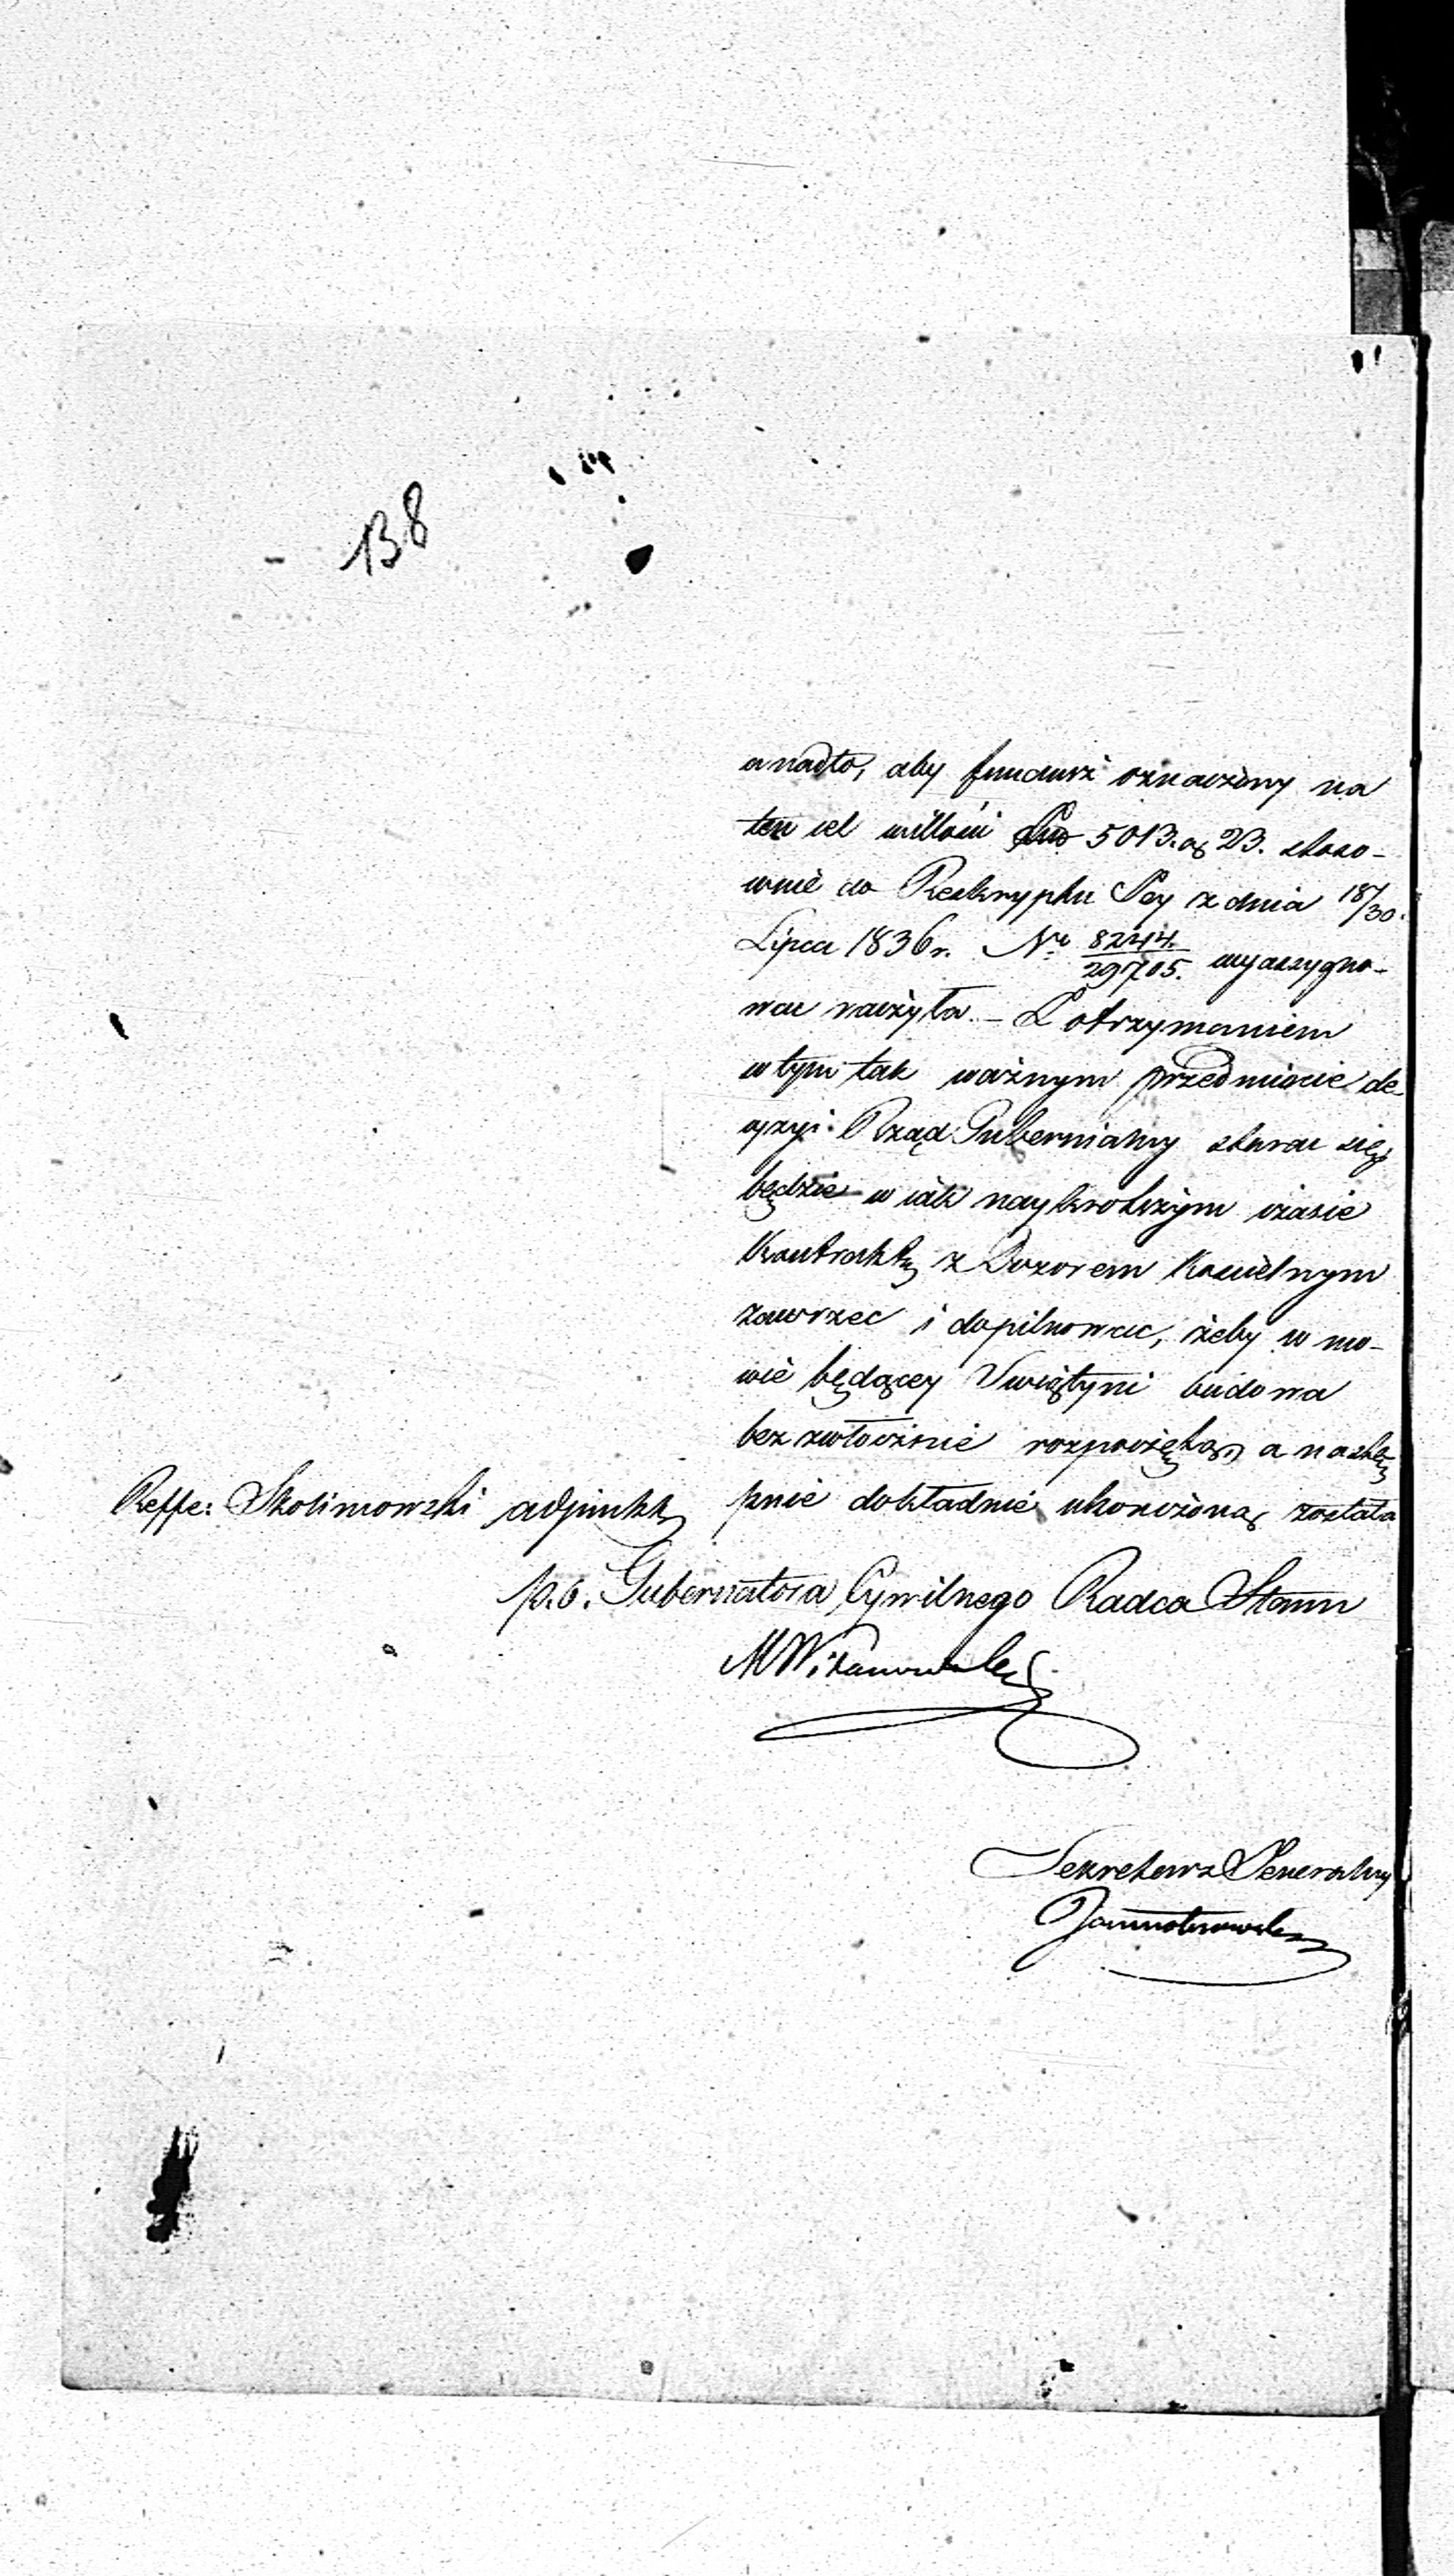 138
a nadto, aby fundusz oznaczony na
ten cel w illości 5013. gr 23. stoso-
wnie do Reskryptu Jey z dnia 18/30.
Lipca 1836 r. Nr 8244./29705. wyassygno-
wać raczyła. – Z otrzymaniem
w tym tak ważnym przedmiocie de-
cyzyi Rząd Gubernialny starać się
będzie w iak naykrotszym czasie
Kontrakt z Dozorem Kościelnym
zawrzeć i dopilnować, żeby w mo-
wie będącey Swiątyni budowa
bezzwłocznie rozpoczęta, a nastę
pnie dokładnie ukończoną została
Reffe: Skolimowski adjunkt
p.o. Gubernatora Cywilnego Radca Stanu
Sekretarz Generalny